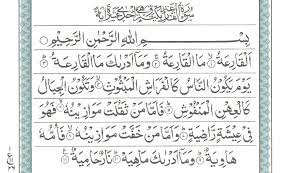 سُورَةُ الْقَارِعَةِ مَكِّيَّةٌ وَهِيَ اِحْدٰى عَشْرَةَ اٰيَةً
بِسْمِ اللّٰهِ الرَّحْمٰنِ الرَّحِيمِ
اَلْقَارِعَةُ ۝ مَا الْقَارِعَةُ ۝ وَمَا اَدْرٰيكَ مَا الْقَارِعَةُ ۝
يَوْمَ يَكُونُ النَّاسُ كَالْفَرَاشِ الْمَبْثُوثِ ۝ وَتَكُونُ الْجِبَالُ
كَالْعِهْنِ الْمَنْفُوشِ ۝ فَاَمَّا مَنْ ثَقُلَتْ مَوَازِينُهُ ۝ فَهُوَ
فِي عِيشَةٍ رَاضِيَةٍ ۝ وَاَمَّا مَنْ خَفَّتْ مَوَازِينُهُ ۝ فَاُمُّهُ
هَاوِيَةٌ ۝ وَمَا اَدْرٰيكَ مَاهِيَهْ ۝ نَارٌ حَامِيَةٌ ۝